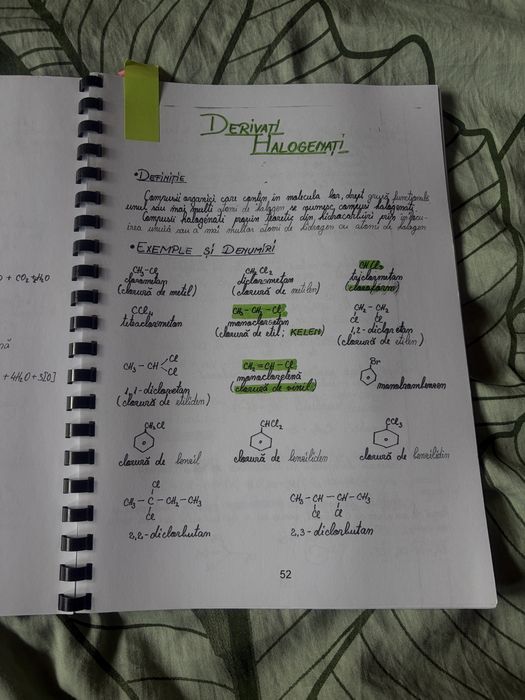 DERIVAȚI
HALOGENAȚI
• DEFINIȚIE
Compușii organici care conțin în molecula lor, drept grupă funcțională
unul sau mai mulți atomi de halogen se numesc compuși halogenați.
Compușii halogenați provin teoretic din hidrocarburi prin înlocu-
irea unuia sau a mai multor atomi de hidrogen cu atomi de halogen
• EXEMPLE ȘI DENUMIRI
CH₃-Cl
clormetan
(clorură de metil)
CH₂Cl₂
diclormetan
(clorură de metilen)
CHCl₃
triclormetan
(cloroform)
CCl₄
tetraclormetan
CH₃-CH₂-Cl
monocloretan
(clorură de etil; KELEN)
CH₂-CH₂
Cl Cl
1,2-dicloretan
(clorură de etilen)
CH₃-CH
Cl
Cl
1,1-dicloretan
(clorură de etiliden)
CH₂=CH-Cl
monocloretenă
(clorură de vinil)
Br
monobrombenzen
CH₂Cl
clorură de benzil
CHCl₂
clorură de benziliden
CCl₃
clorură de benzilidin
Cl
CH₃-C-CH₂-CH₃
Cl
2,2-diclorbutan
CH₃-CH-CH-CH₃
Cl Cl
2,3-diclorbutan
52
+ CO₂ + H₂O
+ 4H₂O + 3[O]